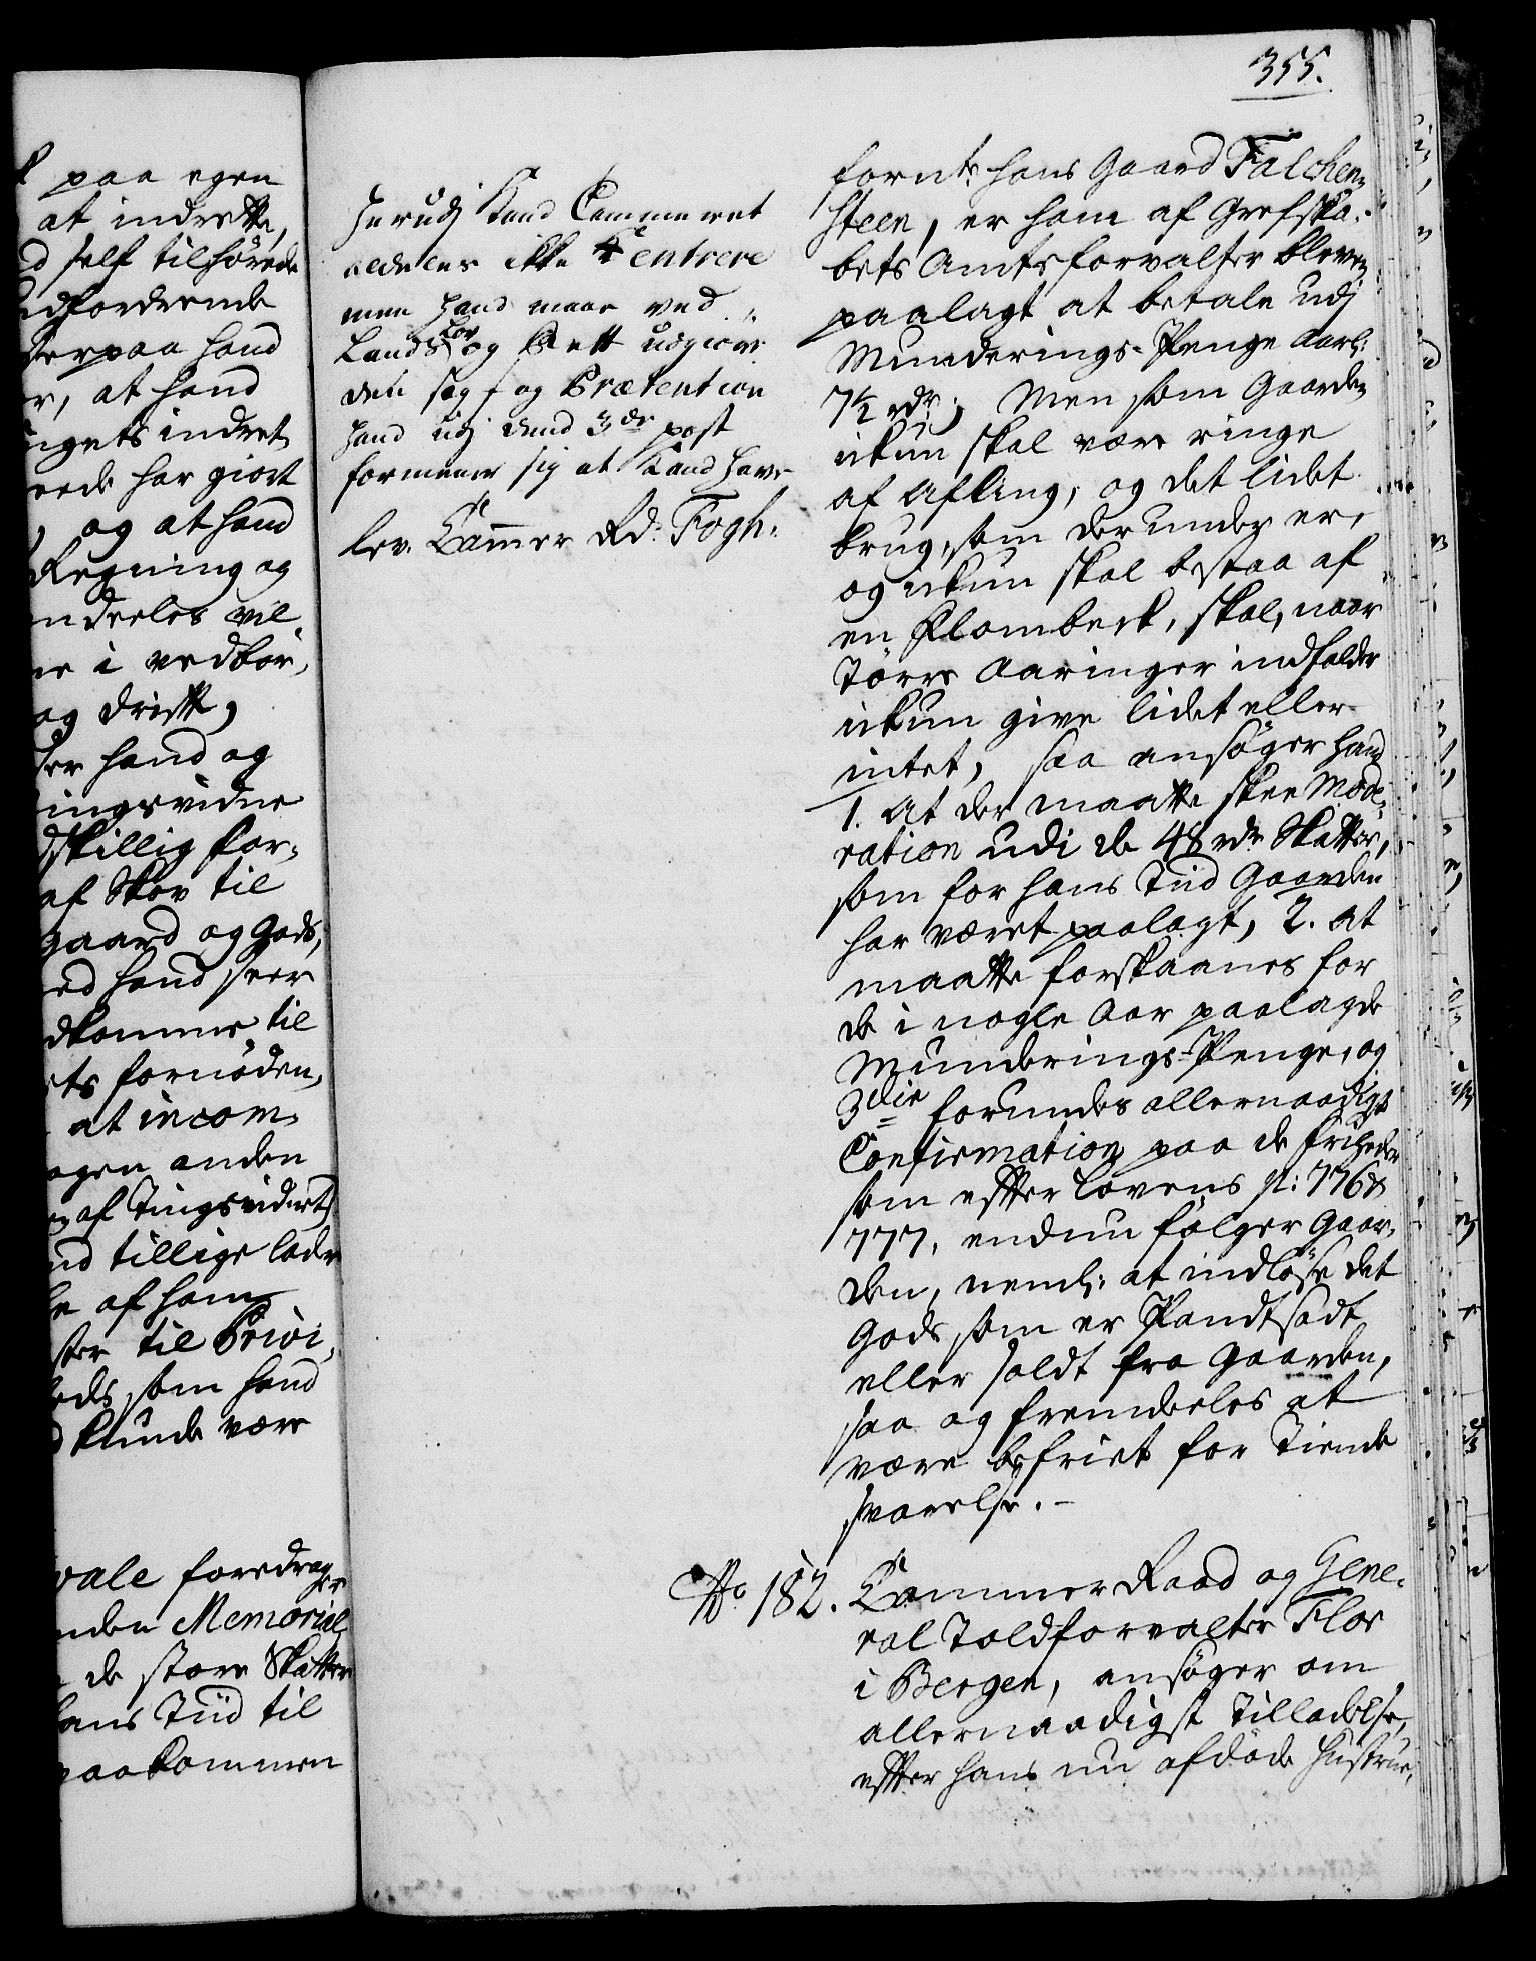 355.
paa egen
at indrette,
self tilhörede
udfordrende
derpaa hand
at hand
indret
rede har giort
og at hand
Regning og
endeeles vil
i vedbör,
og drift,
der hand og
ingsvidne
dskillig for-
af Skov til
gaard og Gods,
ed hand seer
dkomme til
ets fornöden,
at incom,
ogen anden
af Tingsvidnet,
nd tillige lade
af ham
ster til Privi,
eds, som hand
kunde være
vale foredrager
nden Memorial
de store Skatter
hans Tiid til
paakommen
Herudj Kand Cammeret
aldeeles ikke entrere
men hand maae ved
Lands Lov og Rett udgiøre
den sag og Prætention
hand udj dend 3de post
formeener sig at Kand have
lev. Cammer Rd. Fogh.
fornte hans Gaard Falchen,
steen, er ham af Grefska,
bets Amtsforvalter bleven
paalagt at betale udj
Munderings-Penge Aarl:
7½ rdr; Men som Gaarden
ikun skal være ringe
af Afling, og det lidet
brug, som derunder er,
og ikun skal bestaa af
en Flombeck, skal, naar
Törre Aaringer indfalder
ikun give lidet eller
intet, saa ansöger hand
1. At der maatte skee Mode,
ration udi de 48 rdr Skatter,
som for hans Tiid Gaarden
har været paalagt, 2. At
maatte forskaanes for
de i nogle Aar paalagde
Munderings-Penge, og
3die forundes allernaadigst
Confirmation paa de friheder
som effter Lovens p: 776 &
777, endnu fölger Gaar,
den, neml: at indlöse det
Gods som er Pandtsadt
eller soldt fra Gaarden,
saa og fremdeeles at
være befriet for Tiende
svarelse. -
No 182. Cammer Raad og Gene,
ral Toldforvalter Flor
i Bergen, ansöger om
allernaadigst Tilladelse,
effter hans nu afdöde Hustrue,